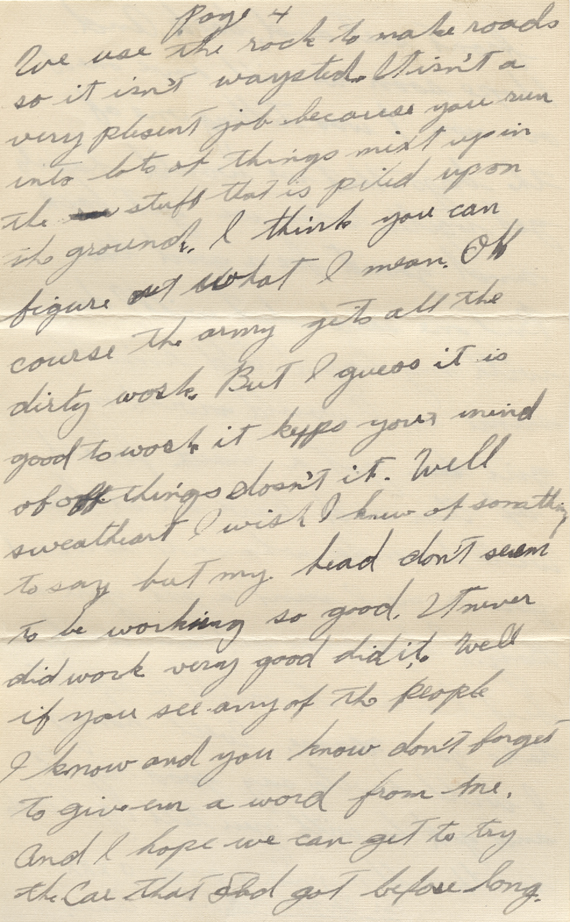 Page 4
We use the rock to make roads
so it isn't waysted. It isn't a
very plesent job because you run
into lots of things mixt up in
the stuff that is piled upon
the ground. I think you can
figure out what I mean. Off
course the army gets all the
dirty work. But I guess it is
good to work it keeps your mind
of off things dosn't it. Well
sweatheart I wish I knew of something
to say but my head don't seem
to be working so good. It never
did work very good did it. Well
if you see any of the people
I know and you know don't forget
to give em a word from me.
And I hope we can get to try
the Car that Dad got before long.